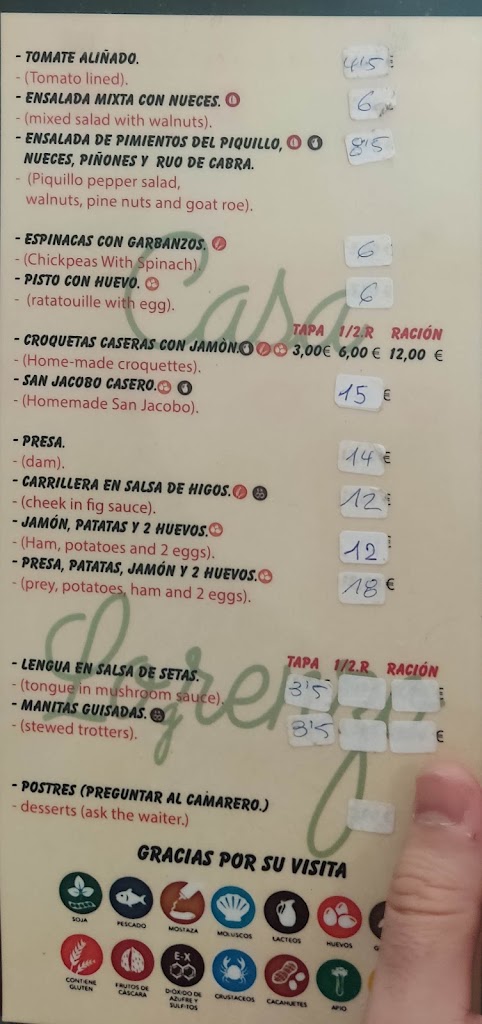 - TOMATE ALIÑADO. 4'5 €
- (Tomato lined).
- ENSALADA MIXTA CON NUECES. 6
- (mixed salad with walnuts).
- ENSALADA DE PIMIENTOS DEL PIQUILLO, 8'5
NUECES, PIÑONES Y RUO DE CABRA.
- (Piquillo pepper salad,
walnuts, pine nuts and goat roe).
- ESPINACAS CON GARBANZOS. 6
- (Chickpeas With Spinach).
- PISTO CON HUEVO. 6
- (ratatouille with egg).
Casa
TAPA 1/2.R RACIÓN
- CROQUETAS CASERAS CON JAMÓN. 3,00€ 6,00 € 12,00 €
- (Home-made croquettes).
- SAN JACOBO CASERO. 15 €
- (Homemade San Jacobo).
- PRESA. 14 €
- (dam).
- CARRILLERA EN SALSA DE HIGOS. 12
- (cheek in fig sauce).
- JAMÓN, PATATAS Y 2 HUEVOS. 12
- (Ham, potatoes and 2 eggs).
- PRESA, PATATAS, JAMÓN Y 2 HUEVOS. 18 €
- (prey, potatoes, ham and 2 eggs).
TAPA 1/2.R RACIÓN
- LENGUA EN SALSA DE SETAS. 3'5
- (tongue in mushroom sauce).
- MANITAS GUISADAS. 3'5 €
- (stewed trotters).
- POSTRES (PREGUNTAR AL CAMARERO.)
- desserts (ask the waiter.)
GRACIAS POR SU VISITA
SOJA PESCADO MOSTAZA MOLUSCOS LACTEOS HUEVOS
E-X
CONTIENE GLUTEN FRUTOS DE CÁSCARA DIÓXIDO DE AZUFRE Y SULFITOS CRUSTACEOS CACAHUETES APIO